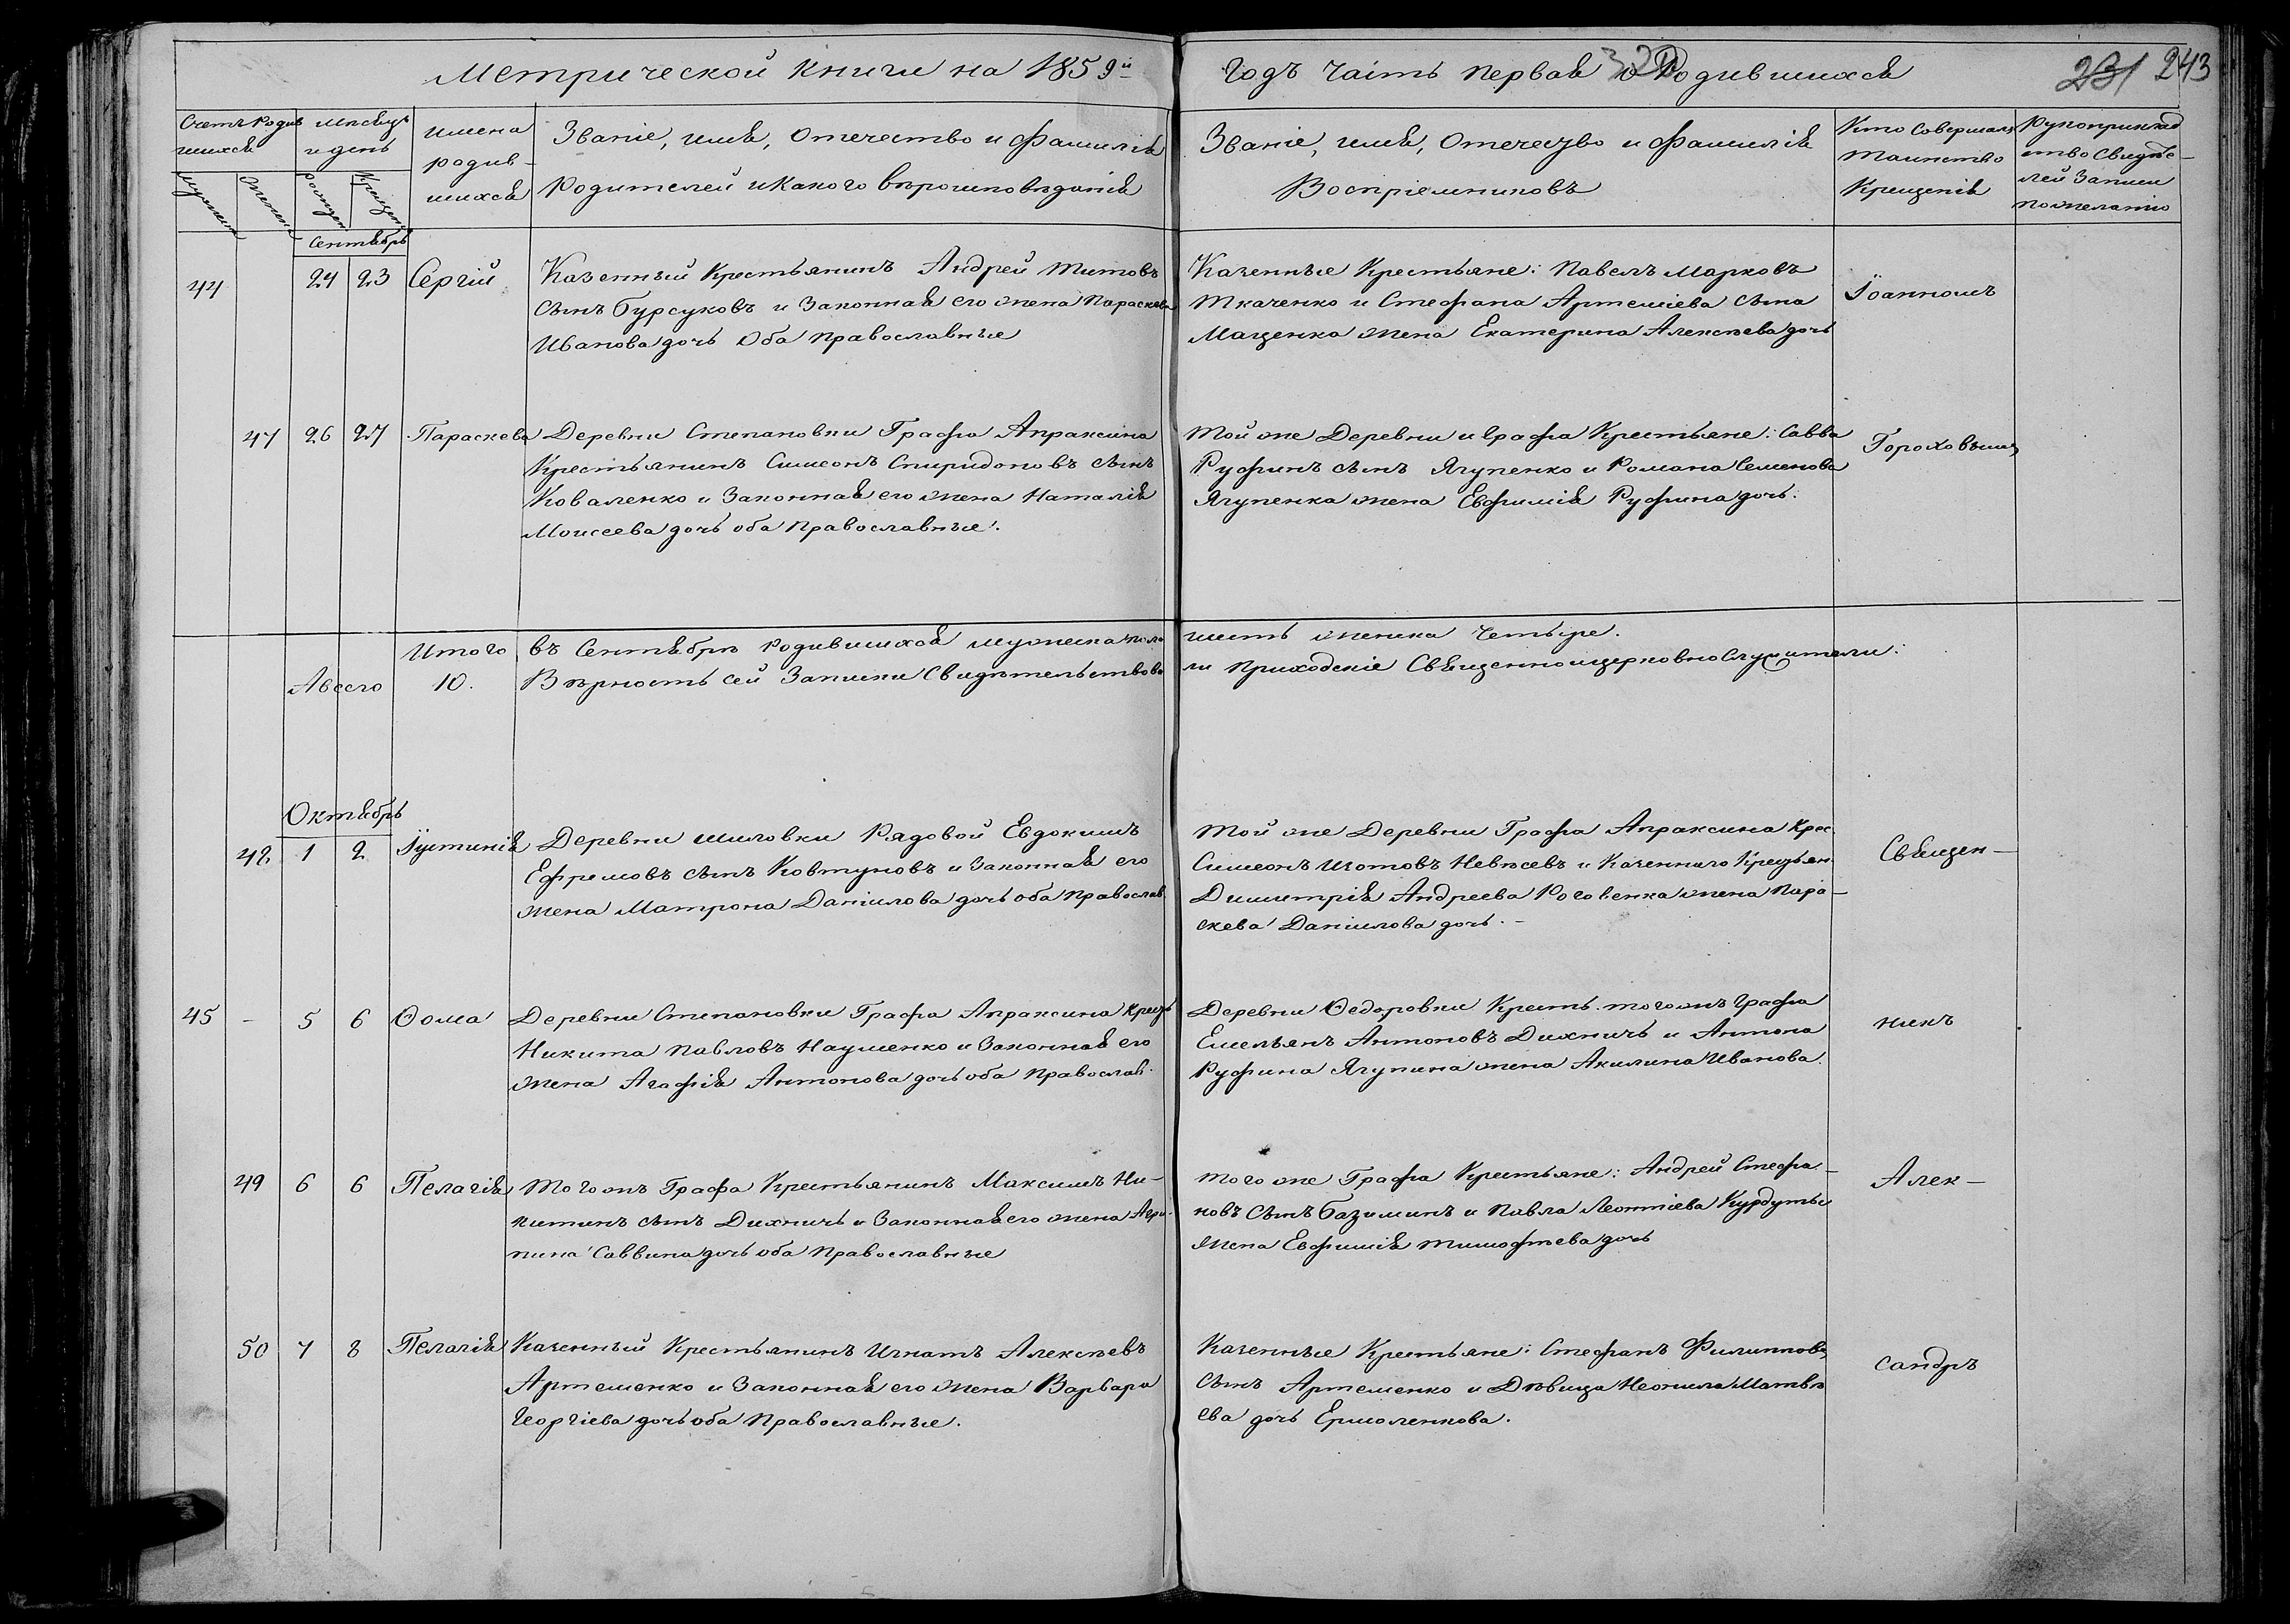 Метрической книги на 1859й
Годъ часть первая о Родившихся
231 243
Счетъ Родив
шихся
Мѣсяцъ
и день
Имена
родив-
шихся
Званіе, имя, отечество и фамилія
Родителей и какого вѣроисповѣданія
Званіе, имя, отечество и фамилія
Воспріемниковъ
Кто совершалъ
таинство
Крещенія
Рукоприклад
ство свидѣте-
лей записи
по желанію
Сентябрь
44 24 23 Сергій
Казенный Крестьянинъ Андрей Титовъ
сынъ Бурсуковъ и Законная его жена Параскева
Иванова дочь Оба православные
Казенные Крестьяне: Павелъ Марковъ
Ткаченко и Стефана Артеміева сына
Маценка жена Екатерина Алексѣева дочь
Іоанномъ
47 26 27 Параскева
Деревни Степановки Графа Апраксина
Крестьянинъ Симеонъ Спиридоновъ сынъ
Коваленко и Законная его жена Наталія
Моисеева дочь оба православные.
Той же Деревни и Графа Крестьяне: Савва
Руфинъ сынъ Ягупенко и Романа Семенова
Ягупенка жена Евфимія Руфина дочь.
Гороховымъ
Итого въ Сентябрѣ родившихся мужеска пола
шесть женска четыре.
А всего 10. Вѣрность сей Записи свидѣтельствова
ли Приходскіе Священноицерковнослужители:
Октябрь
48 1 2 Іустинія
Деревни Шиловки Рядовой Евдокимъ
Ефремовъ сынъ Ковтуновъ и Законная его
жена Матрона Даніилова дочь оба православ.
Той же Деревни Графа Апраксина Крес.
Симеонъ Изотовъ Невѣсевъ и Казеннаго Крестьян.
Димитрія Андреева Роговенка жена Пара-
скева Даніилова дочь. -
Священ-
45 - 5 6 Ѳома
Деревни Степановки Графа Апраксина Крест
Никита Павловъ Науменко и Законная его
жена Агафія Антонова дочь оба православ.
Деревни Ѳедоровки Кресть. тогожъ Графа
Емельянъ Антоновъ Дихничъ и Антона
Руфина Ягупина жена Акилина Иванова.
никъ
49 6 6 Пелагія
Тогожъ Графа Крестьянинъ Максимъ Ни-
китинъ сынъ Дихничъ и Законная его жена Агри-
пина Саввина дочь оба православные
Того же Графа Крестьяне: Андрей Стефа-
новъ сынъ Базилинъ и Павла Леонтіева Курдупы
жена Евфимія Тимофѣева дочь
Алек-
50 7 8 Пелагія
Казенный Крестьянинъ Игнатъ Алексѣевъ
Артеменко и Законная его жена Варвара
Георгіева дочь оба православные.
Казенные Крестьяне: Стефанъ Филипповъ
сынъ Артеменко и Дѣвица Неонила Матвѣ
ева дочь Ермоленкова.
сандръ